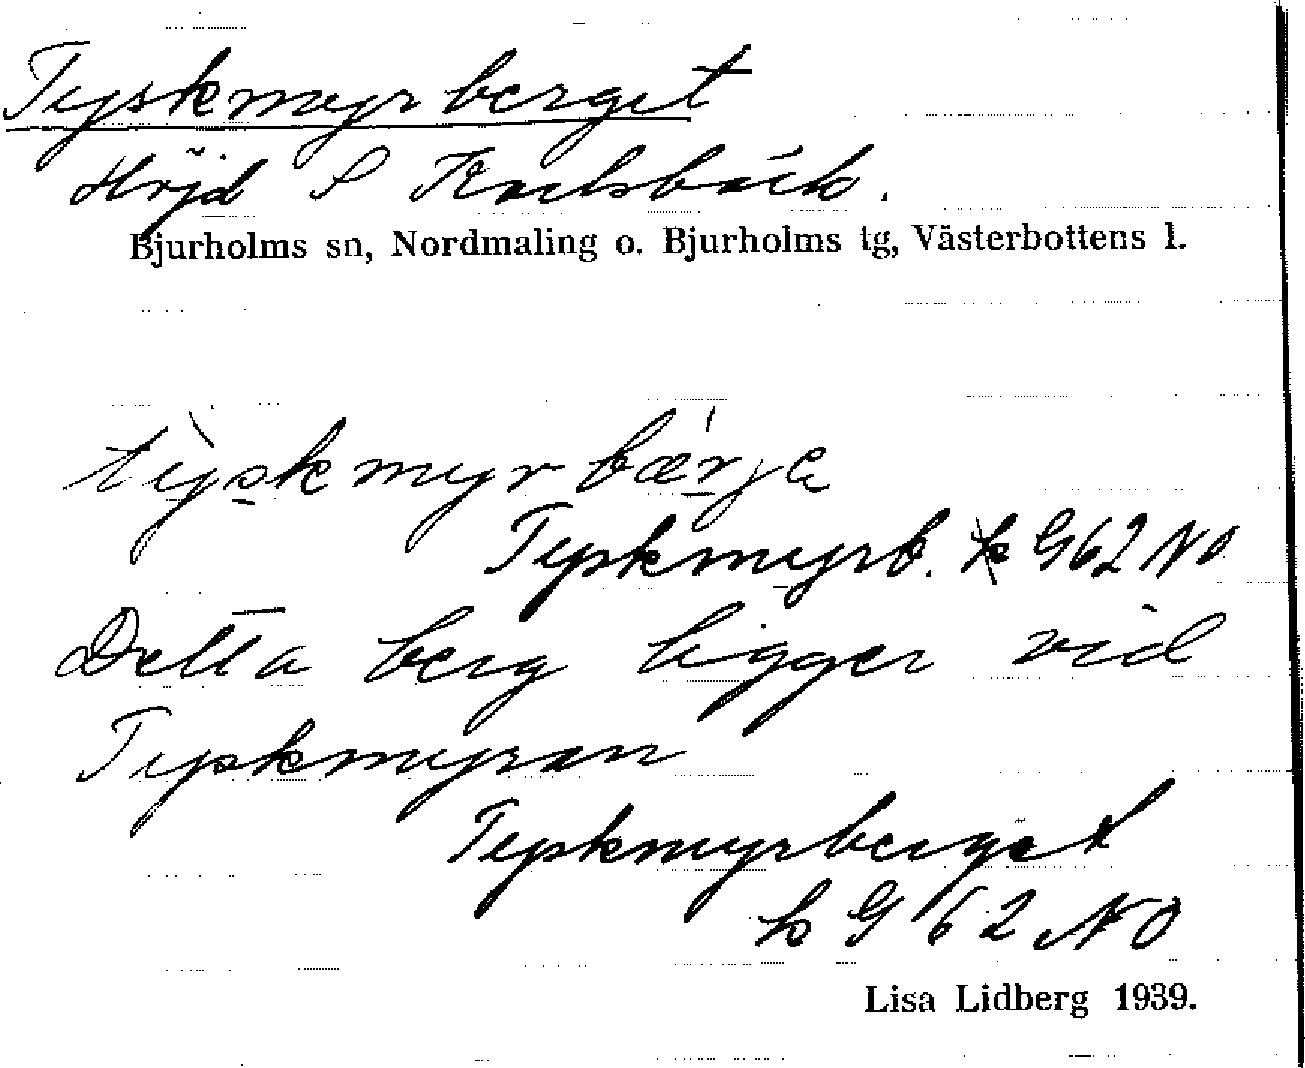 Tyskmyrberget
Höjd S Karlsbäck.
Bjurholms sn, Nordmaling o. Bjurholms tg, Västerbottens l.
tỳskmyrbǽrje
Tyskmyrb. k G62 NO
Detta berg ligger vid
Tyskmyran
Tyskmyrberget
k G 62 NO
Lisa Lidberg 1939.